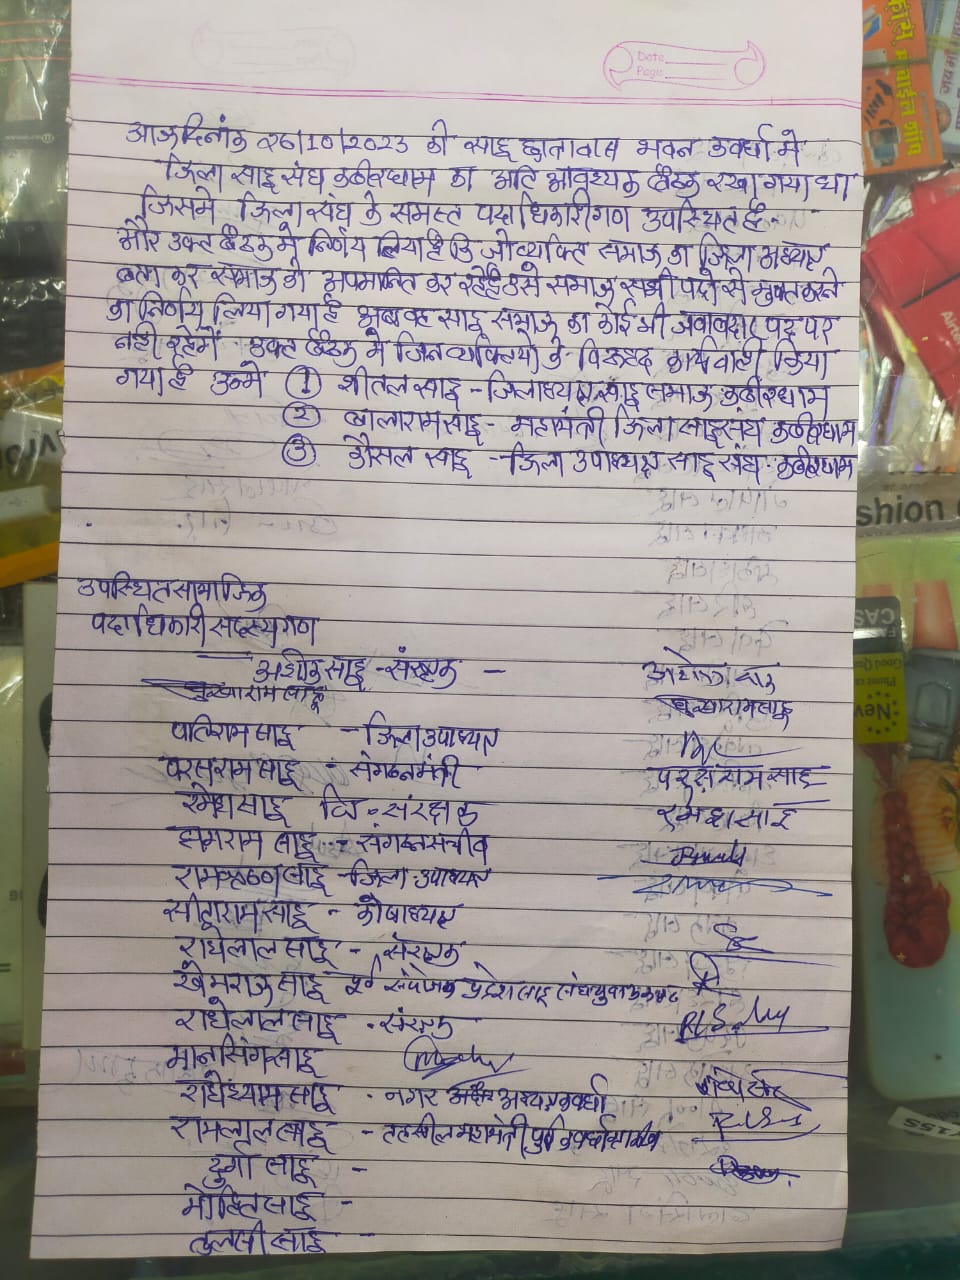 Date
Page
आज दिनांक 26/10/2023 को साहू छात्रावास भवन कवर्धा मे
जिला साहू संघ कबीरधाम का अति आवश्यक बैठक रखा गया था
जिसमे जिला संघ के समस्त पदाधिकारीगण उपस्थित है
और उक्त बैठक मे निर्णय लिया है कि जो व्यक्ति समाज का जिला अध्यक्ष
बता कर समाज को अपमानित कर रहे है उसे समाज सभी पदो से मुक्त करने
का निर्णय लिया गया है अब वह साहू समाज का कोई भी जवाबदार पद पर
नही रहेगें उक्त बैठक मे जिन व्यक्तियो के विरूद्ध कार्यवाही किया
गया है उनमे ① शीतल साहू - जिलाध्यक्ष साहू समाज कबीरधाम
② बालाराम साहू - महामंत्री जिला साहू संघ कबीरधाम
③ कौसल साहू - जिला उपाध्यक्ष साहू संघ कबीरधाम
उपस्थित सामाजिक
पदाधिकारी सदस्यगण
अशोक साहू - संरक्षक - अशोक साहू
पतिराम साहू - जिला उपाध्यक्ष
परसराम साहू - संगठनमंत्री
रमेश साहू वि. संरक्षक रमेश साहू
साहू - संगठन सचीव
साहू - जिला उपाध्यक्ष
सीताराम साहू - कोषाध्यक्ष
राधेलाल साहू - संरक्षक
खेमराज साहू पूर्व संयोजक प्रदेश साहू संघ युवा
राधेलाल साहू - संरक्षक
मानसिंग साहू
राधेश्याम साहू - नगर अध्यक्ष कवर्धा
रामलाल साहू - तहसील महामंत्री
दुर्गा साहू -
मोहित साहू -
तुलसी साहू -
shion
CASE
New